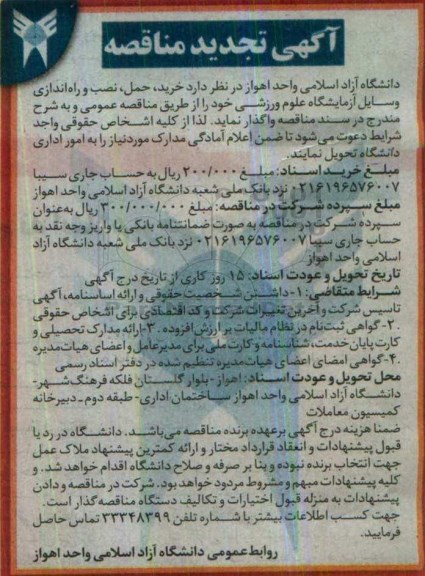 آگهی تجدید مناقصه
دانشگاه آزاد اسلامی واحد اهواز در نظر دارد خرید، حمل، نصب و راه‌اندازی
وسایل آزمایشگاه علوم ورزشی خود را از طریق مناقصه عمومی و به شرح
مندرج در سند مناقصه واگذار نماید. لذا از کلیه اشخاص حقوقی واجد
شرایط دعوت می‌شود تا ضمن اعلام آمادگی مدارک موردنیاز را به امور اداری
دانشگاه تحویل نمایند.
مبلغ خرید اسناد: مبلغ ۲۰۰/۰۰۰ ریال به حساب جاری سیبا
۰۲۱۶۱۹۶۵۷۶۰۰۷ نزد بانک ملی شعبه دانشگاه آزاد اسلامی واحد اهواز
مبلغ سپرده شرکت در مناقصه: مبلغ ۳۰۰/۰۰۰/۰۰۰ ریال به‌عنوان
سپرده شرکت در مناقصه به صورت ضمانتنامه بانکی یا واریز وجه نقد به
حساب جاری سیبا ۰۲۱۶۱۹۶۵۷۶۰۰۷ نزد بانک ملی شعبه دانشگاه آزاد
اسلامی واحد اهواز
تاریخ تحویل و عودت اسناد: ۱۵ روز کاری از تاریخ درج آگهی
شرایط متقاضی: ۱-داشتن شخصیت حقوقی و ارائه اساسنامه، آگهی
تاسیس شرکت و آخرین تغییرات شرکت و کد اقتصادی برای اشخاص حقوقی
۲-گواهی ثبت‌نام در نظام مالیات بر ارزش افزوده. ۳-ارائه مدارک تحصیلی و
کارت پایان خدمت، شناسنامه و کارت ملی برای مدیرعامل و اعضای هیات‌مدیره
۴-گواهی امضای اعضای هیات‌مدیره تنظیم شده در دفتر اسناد رسمی
محل تحویل و عودت اسناد: اهواز - بلوار گلستان فلکه فرهنگ‌شهر-
دانشگاه آزاد اسلامی واحد اهواز ساختمان اداری- طبقه دوم - دبیرخانه
کمیسیون معاملات
ضمنا هزینه درج آگهی برعهده برنده مناقصه می‌باشد. دانشگاه در رد یا
قبول پیشنهادات و انعقاد قرارداد مختار و ارائه کمترین پیشنهاد ملاک عمل
جهت انتخاب برنده نبوده و بنا بر صرفه و صلاح دانشگاه اقدام خواهد شد. و
کلیه پیشنهادات مبهم و مشروط مردود خواهد بود. شرکت در مناقصه و دادن
پیشنهادات به منزله قبول اختیارات و تکالیف دستگاه مناقصه گذار است.
جهت کسب اطلاعات بیشتر با شماره تلفن ۳۳۳۴۸۳۹۹ تماس حاصل
فرمایید.
روابط عمومی دانشگاه آزاد اسلامی واحد اهواز